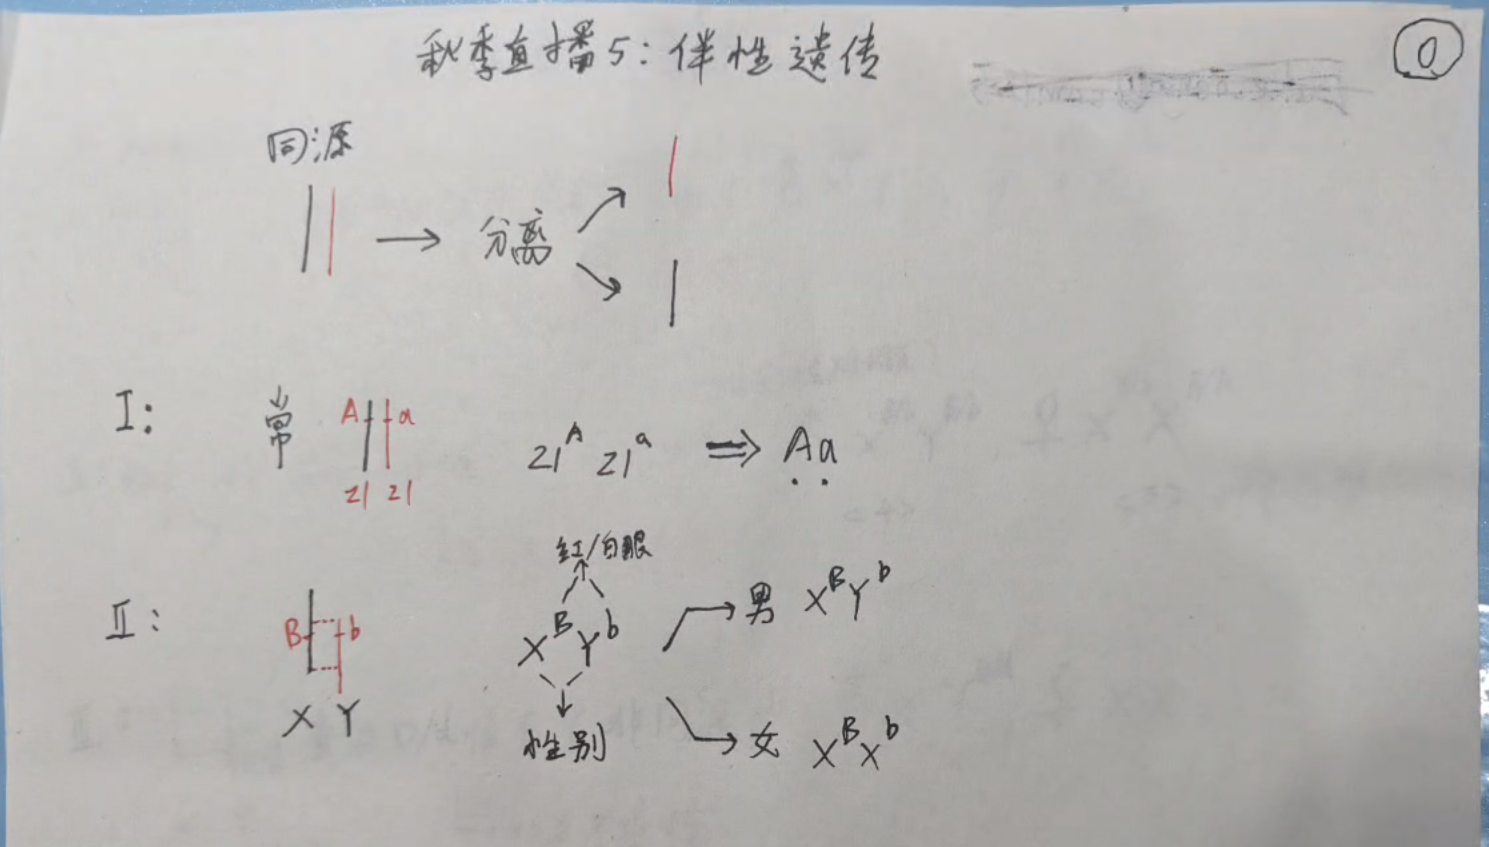 秋季直播5:伴性遗传
0
同源
分离
I:
常
A a
21 21
21^A 21^a ⇒ Aa
II:
B b
X Y
红/白眼
X^B Y^b
性别
男 X^B Y^b
女 X^B X^b